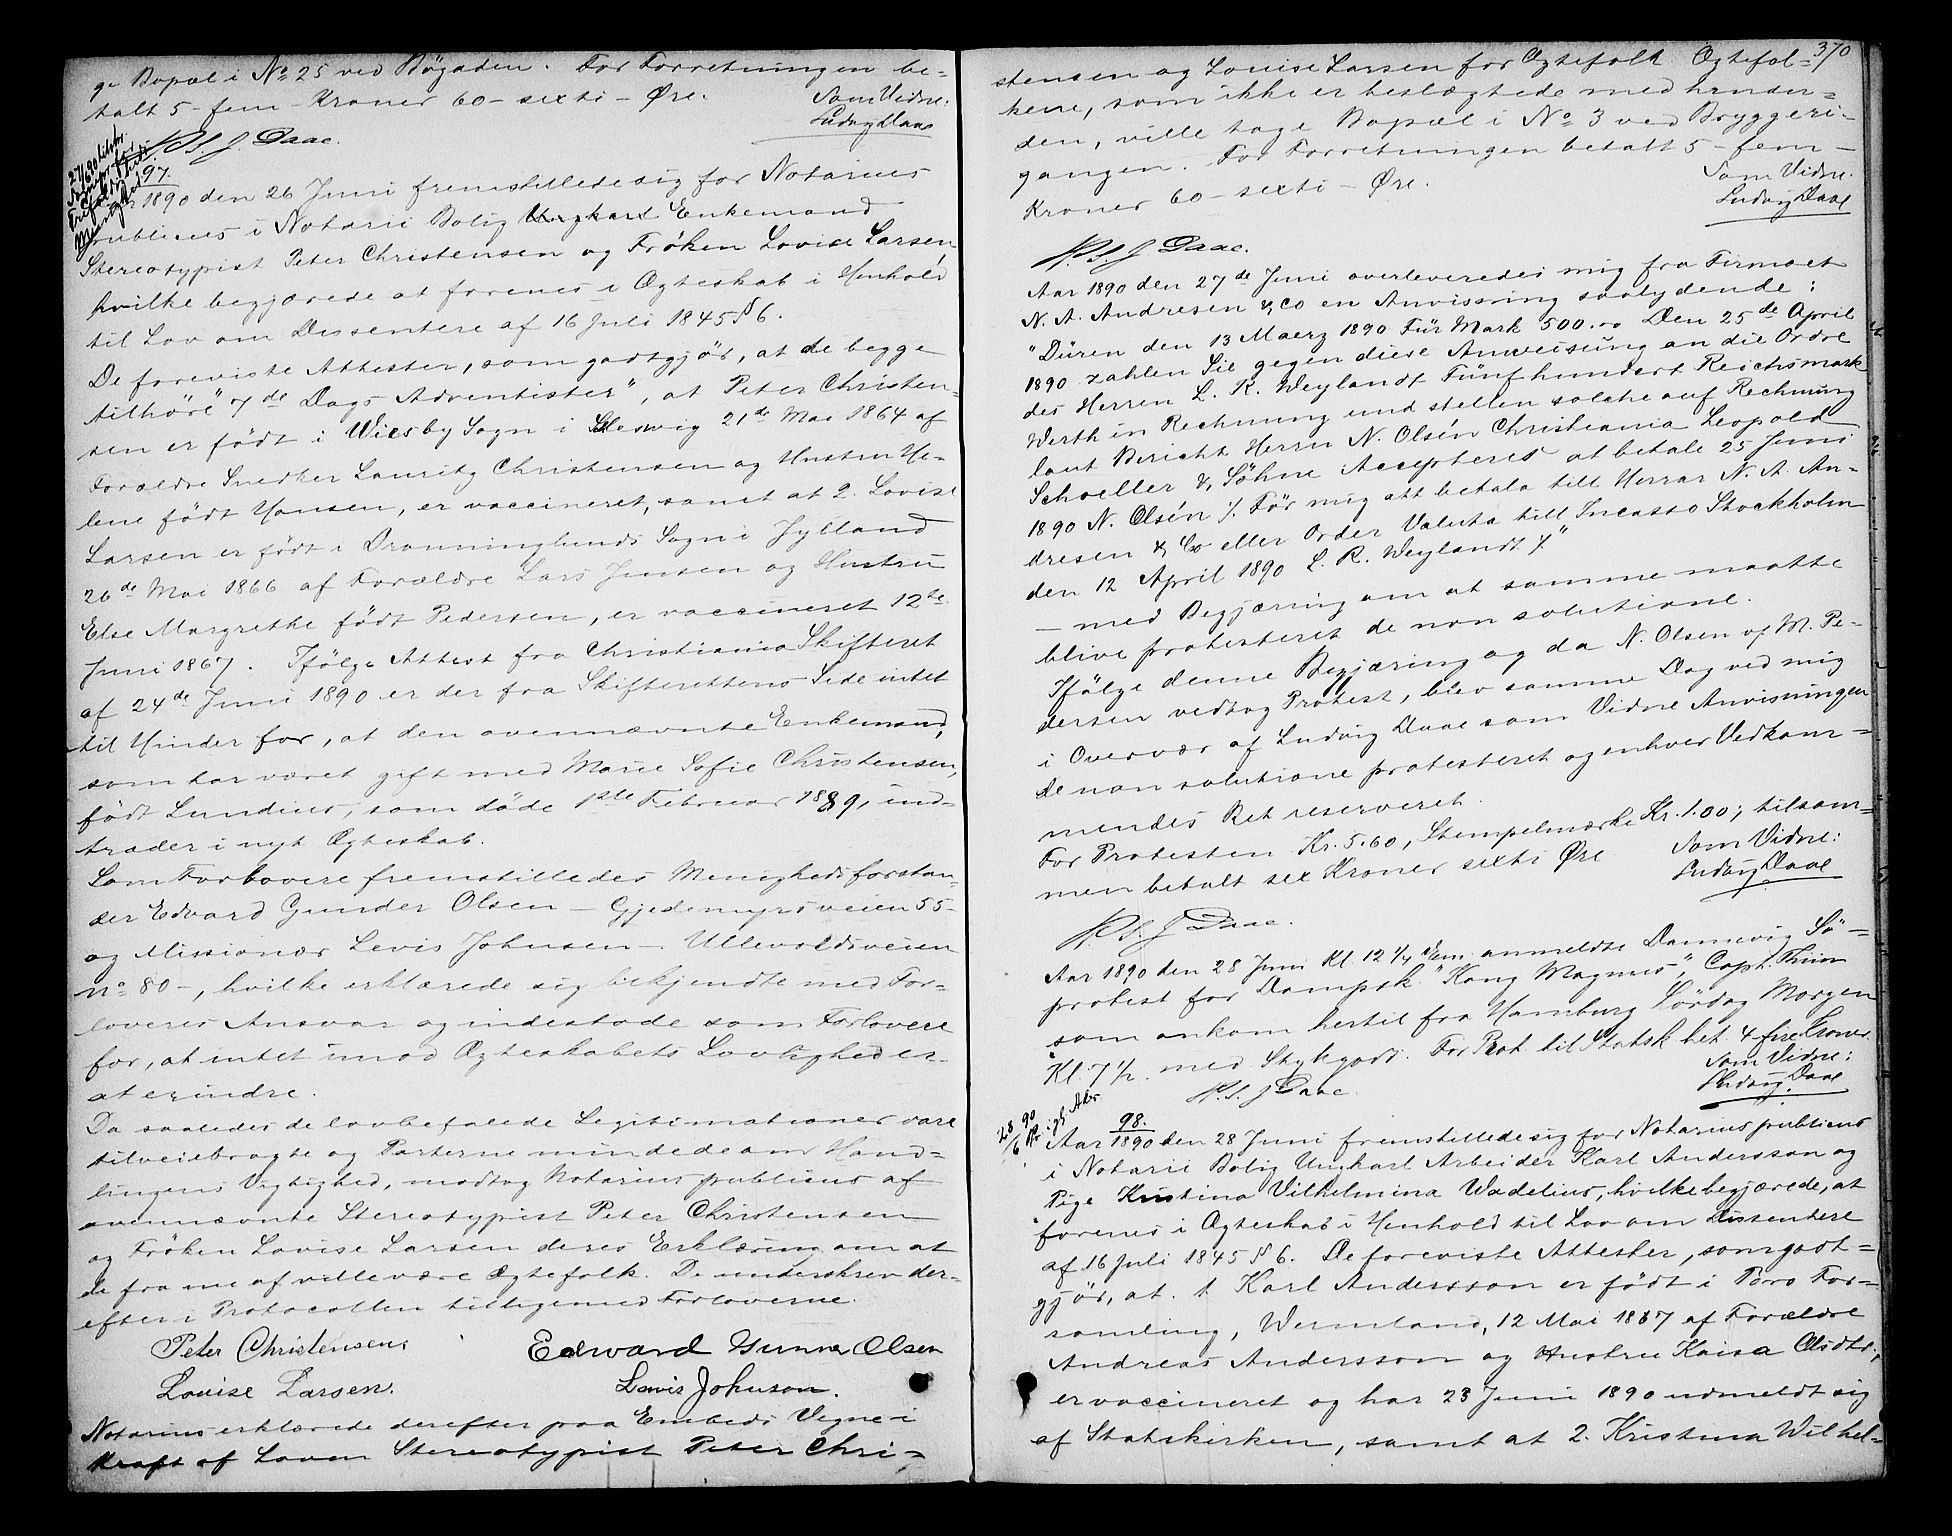 ge Bopæl i No 25 ved Bögaden. For Forretningen be-
talt 5 - fem - Kroner 60 - sexti - Øre.
Som Vidne:
Ludvig Daae
N. S. J. Daae.
27/6 90
97.
Aar 1890 den 26 Juni fremstillede sig for Notarius
publicus i Notarii Bolig Ungkarl Enkemand
Stereotypist Peter Christensen og Frøken Lovise Larsen,
hvilke begjærede at forenes i Ægteskab i Henhold
til Lov om Dissentere af 16 Juli 1845 § 6.
De foreviste Attester, som godtgjör, at de begge
tilhöre "7de Dags Adventister", at Peter Christen-
sen er födt i Wiesby Sogn i Slesvig 21de Mai 1864 af
Forældre Snedker Lauritz Christensen og Hustru He-
lene födt Hansen, er vaccineret, samt at 2. Lovise
Larsen er födt i Dronninglunds Sogn i Jylland
26de Mai 1866 af Forældre Lars Jensen og Hustru
Else Margrethe födt Pedersen, er vaccineret 12te
Juni 1867. Ifölge Attest fra Christiania Skifteret
af 24de Juni 1890 er der fra Skifterettens Side intet
til Hinder for, at den ovennævnte Enkemand,
som har været gift med Marie Sofie Christensen,
födt Lundius, som döde 1ste Februar 1889, ind-
træder i nyt Ægteskab.
Som Forlovere fremstilledes Menighedsforstan-
der Edvard Gunder Olsen - Gjedemyrsveien 55 -
og Missionær Levis Johnsen - Ullevoldsveien
No 80 -, hvilke erklærede sig bekjendte med For-
loveres Ansvar og indestode som Forlovere
for, at intet imod Ægteskabets Lovlighed er
at erindre.
Da saaledes de lovbefalede Legitimationer vare
tilveiebragte og Parterne mindede om Hand-
lingens Vigtighed, modtog Notarius publicus af
ovennævnte Stereotypist Peter Christensen
og Frøken Lovise Larsen deres Erklæring om at
de fra nu af ville være Ægtefolk. De underskrev der-
efter i Protocollen tilligemed Forloverne.
Peter Christensen. Edward Gunner Olsen
Louise Larsen. Lewis Johnson.
Notarius erklærede derefter paa Embeds Vegne i
Kraft af Loven Stereotypist Peter Chri-
370
stensen og Louise Larsen for Ægtefolk. Ægtefol-
kene, som ikke er beslægtede med hinan-
den, ville tage Bopæl i No 3 ved Bryggeri-
gangen. For Forretningen betalt 5 - fem -
Kroner 60 - sexti - Øre.
Som Vidne.
Ludvig Daae
N. S. J. Daae.
Aar 1890 den 27de Juni overleveredes mig fra Firmaet
N. A. Andresen & Co en Anvisning saalydende:
"Düren den 13 Maerz 1890 Für Mark 500.00 Den 25de April
1890 zahlen Sie gegen diese Anweisung an die Ordre
des Herren L. R. Weylandt Fünfhundert Reichsmark
Werth in Rechnung und stellen solche auf Rechnung
laut Bericht Herrn N. Olsén Christiania Leopold
Schoeller & Söhne Accepteres at betale 25 Juni
1890 N. Olsén /. För mig att betala till Herrar N. A. An-
dresen & Co eller Order Valuta till Incasso Stockholm
den 12 April 1890 L. R. Weylandt /."
- med Begjæring om at samme maatte
blive protesteret de non solutione.
Ifölge denne Begjæring og da N. Olsen og M. Pe-
dersen vedtog Protest, blev samme Dag ved mig
i Overvær af Ludvig Daae som Vidne Anvisningen
de non solutione protesteret og enhver Vedkom-
mendes Ret reserveret.
For Protesten Kr. 5.60, Stempelmærke Kr. 1.00; tilsam-
men betalt sex Kroner sexti Øre
Som Vidne:
Ludvig Daae
N. S. J. Daae.
Aar 1890 den 28 Juni Kl. 12 1/4 Em. anmeldte Dannevig Sö-
protest for Dampsk. "Kong Magnus", Capt. Thiim
som ankom hertil fra Hamburg Lördag Morgen
Kl. 7 1/2 med Stykgods. For Prot. til Statsk. bet. 4 fire Kroner.
Som Vidne:
Ludvig Daae
N. S. J. Daae.
28/6 90
98.
Aar 1890 den 28 Juni fremstillede sig for Notarius publicus
i Notarii Bolig Ungkarl Arbeider Karl Andersson og
Pige Kristina Vilhelmina Wadelius, hvilke begjærede, at
forenes i Ægteskab i Henhold til Lov om Dissentere
af 16 Juli 1845 § 6. De foreviste Attester, som godt-
gjör, at. 1. Karl Andersson er födt i For-
samling, Wermland, 12 Mai 1867 af Forældre
Andreas Andersson og Hustru Kaisa Olsdtr.,
er vaccineret og har 23 Juni 1890 udmeldt sig
af Statskirken, samt at 2. Kristina Wilhel-